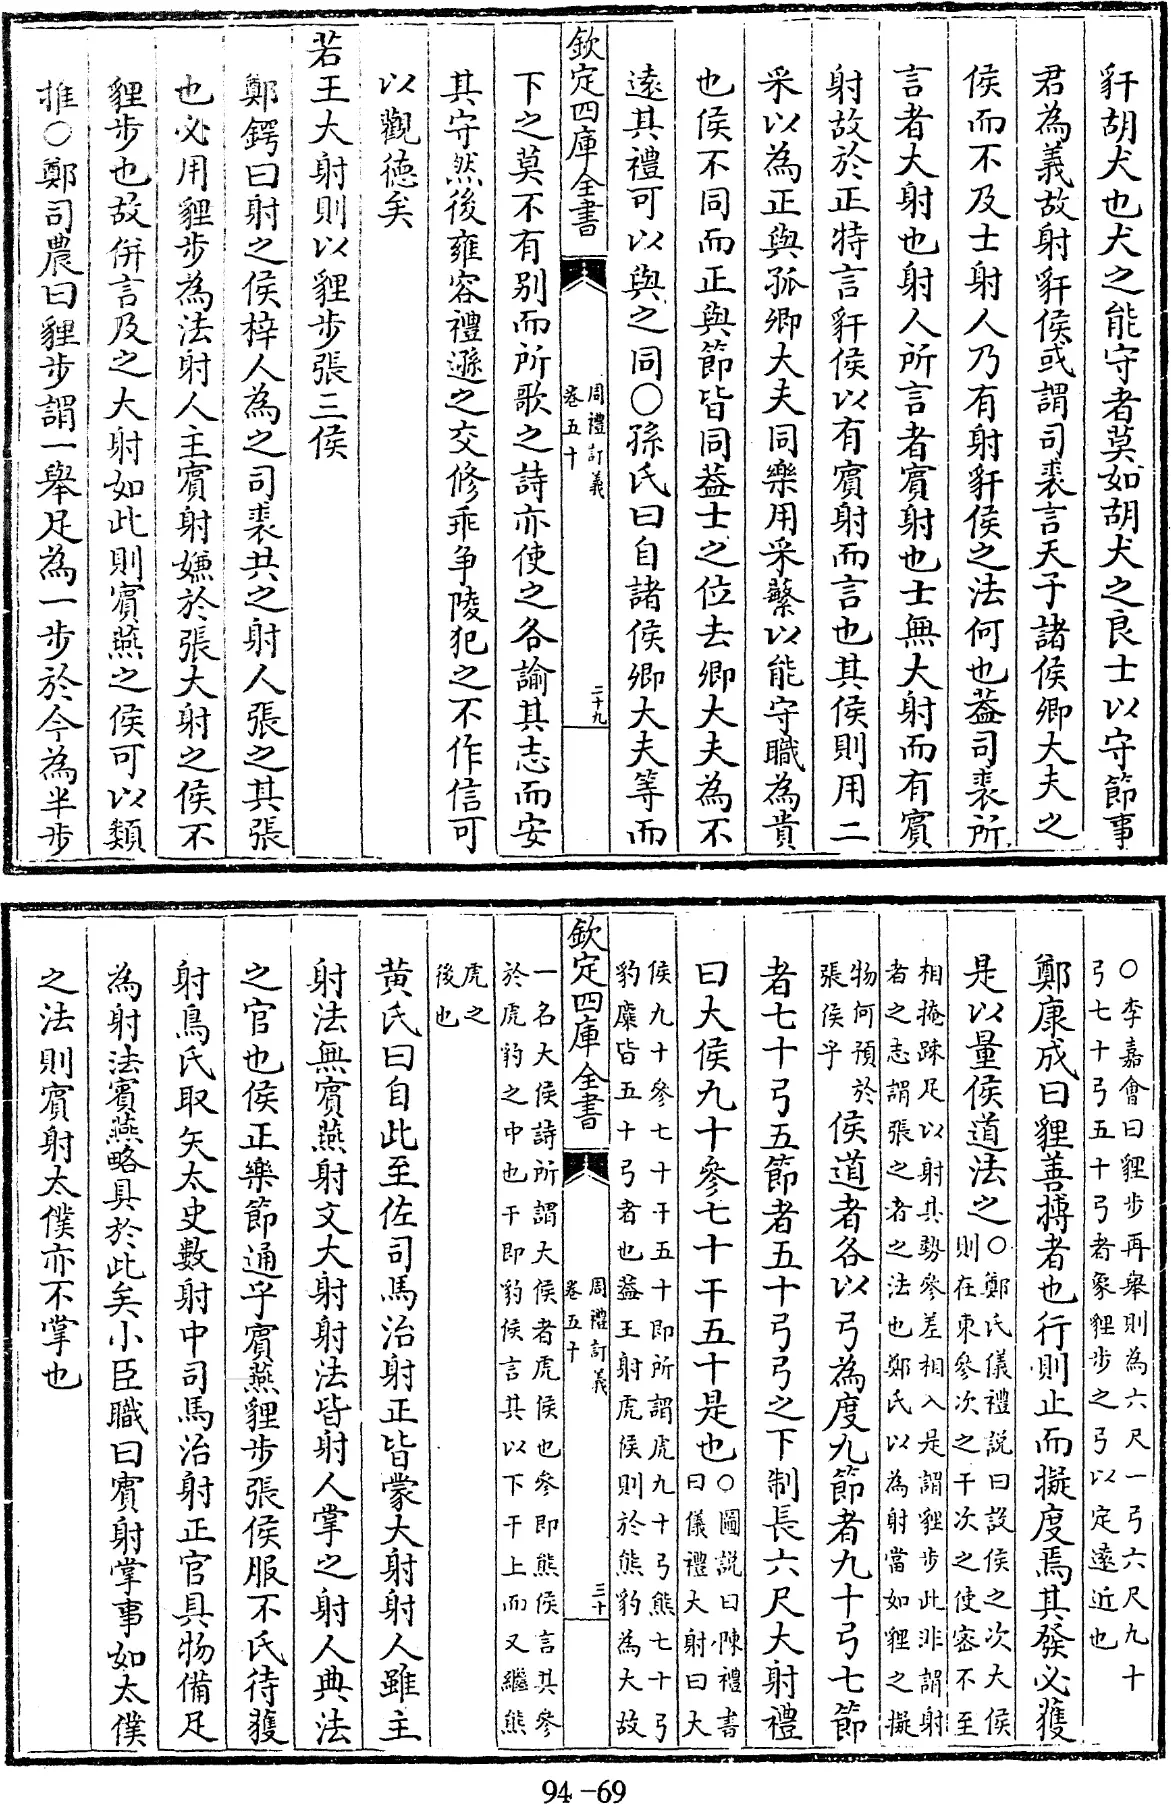 豻胡犬也犬之能守者莫如胡犬之良士以守節事
君為義故射豻侯或謂司裘言天子諸侯卿大夫之
侯而不及士射人乃有射豻侯之法何也葢司裘所
言者大射也射人所言者賔射也士無大射而有賔
射故於正特言豻侯以有賔射而言也其侯則用二
采以為正與孤卿大夫同樂用采蘩以能守職為貴
也侯不同而正與節皆同葢士之位去卿大夫為不
遠其禮可以與之同○孫氏曰自諸侯卿大夫等而
欽定四庫全書
周禮訂義
卷五十
二十九
下之莫不有别而所歌之詩亦使之各諭其志而安
其守然後雍容禮遜之交修乖争陵犯之不作信可
以觀徳矣
若王大射則以貍步張三侯
鄭鍔曰射之侯梓人為之司裘共之射人張之其張
也必用貍步為法射人主賔射嫌於張大射之侯不
貍步也故併言及之大射如此則賔燕之侯可以類
推○鄭司農曰貍步謂一舉足為一步於今為半步
○李嘉會曰貍步再舉則為六尺一弓六尺九十
弓七十弓五十弓者象貍步之弓以定遠近也
鄭康成曰貍善搏者也行則止而擬度焉其發必獲
是以量侯道法之○鄭氏儀禮說曰設侯之次大侯
則在東參次之干次之使密不至
相掩踈足以射其勢參差相入是謂貍步此非謂射
者之志謂張之者之法也鄭氏以為射當如貍之擬
物何預於
張侯乎
侯道者各以弓為度九節者九十弓七節
者七十弓五節者五十弓弓之下制長六尺大射禮
曰大侯九十參七十干五十是也○圖説曰陳禮書
曰儀禮大射曰大
侯九十參七十干五十即所謂虎九十弓熊七十弓
豹麋皆五十弓者也葢王射虎侯則於熊豹為大故
欽定四庫全書
周禮訂義
卷五十
三十
一名大侯詩所謂大侯者虎侯也參即熊侯言其參
於虎豹之中也干即豹侯言其以下干上而又繼熊
虎之
後也
黄氏曰自此至佐司馬治射正皆蒙大射射人雖主
射法無賔燕射文大射射法皆射人掌之射人典法
之官也侯正樂節通乎賔燕貍步張侯服不氏待獲
射鳥氏取矢太史數射中司馬治射正官具物備足
為射法賔燕略具於此矣小臣職曰賔射掌事如太僕
之法則賔射太僕亦不掌也
94-69